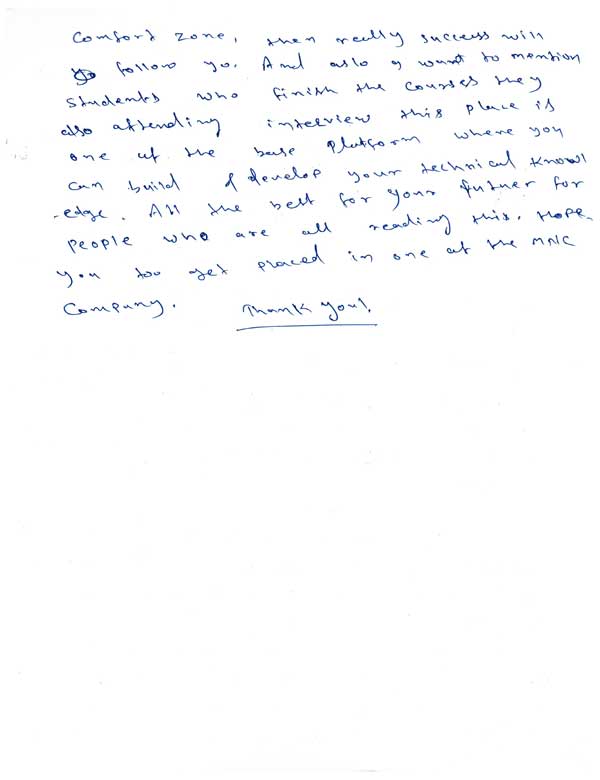 Comfort zone, then really success will
follow yo. And aslo I want to mention
Students who finish the courses they
also attending interview this place is
one of the base platform where you
can build & develop your technical knowl
-edge. All the best for your futuer for
people who are all reading this. Hope
you too get placed in one at the MNC
Company. Thank you!.